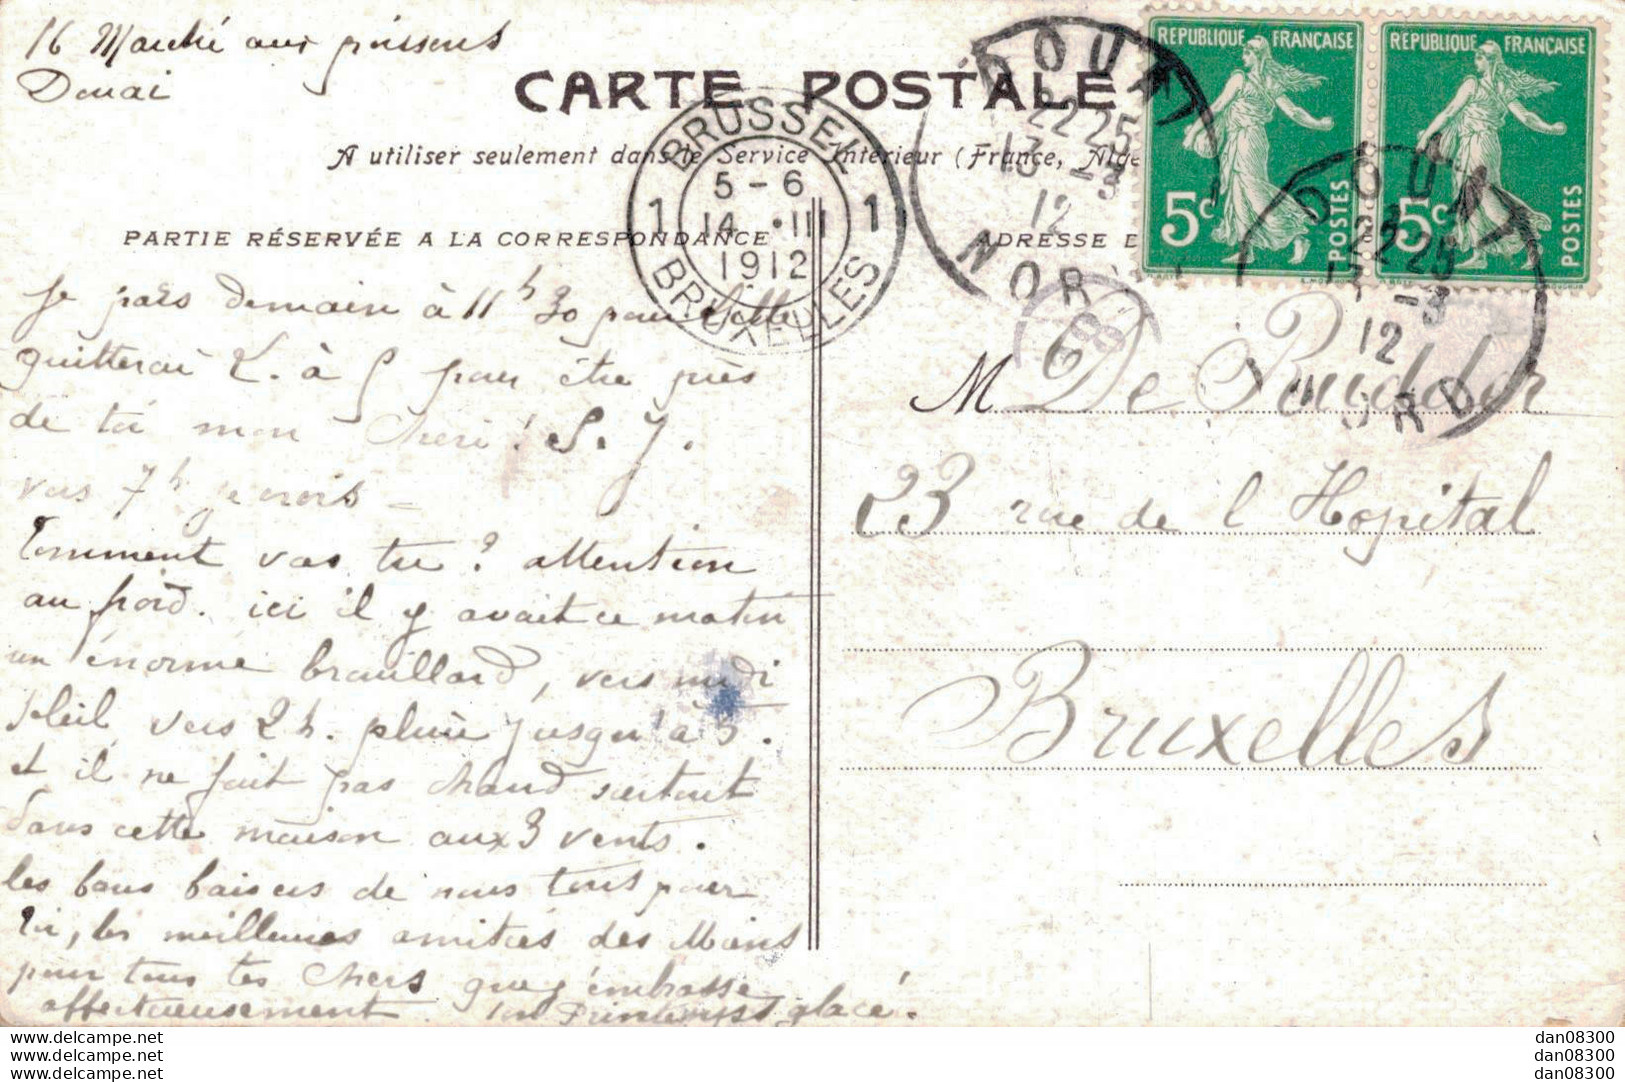 16 Marché aux poissons
Douai
CARTE POSTALE
A utiliser seulement dans le Service Intérieur (France, Alge
PARTIE RÉSERVÉE A LA CORRESPONDANCE
ADRESSE D
RÉPUBLIQUE FRANÇAISE
5c
POSTES
RÉPUBLIQUE FRANÇAISE
5c
POSTES
BRUSSEL
1 5-6 1
14 III
1912
BRUXELLES
DOUAI
22 25
13 -3
12
NORD
DOUAI
22 25
13 -3
12
NORD
Je pars demain à 11h 30 pour
quitterai L. à 5 pour être près
de toi mon Cheri! S. J.
vers 7h je crois -
Comment vas tu? attention
au froid. ici il y avait ce matin
un énorme brouillard, vers midi
soleil, vers 2 h. pluie jusqu'à 5.
et il ne fait pas chaud surtout
dans cette maison aux 3 vents.
les bons baisers de nous tous pour
toi, les meilleures amitiés des Moens
pour tous tes Chers que j'embrasse
affectueusement. Ton Printemps glacé.
M De Rudder
23 rue de l Hopital
Bruxelles
dan08300
dan08300
dan08300
dan08300
dan08300
dan08300